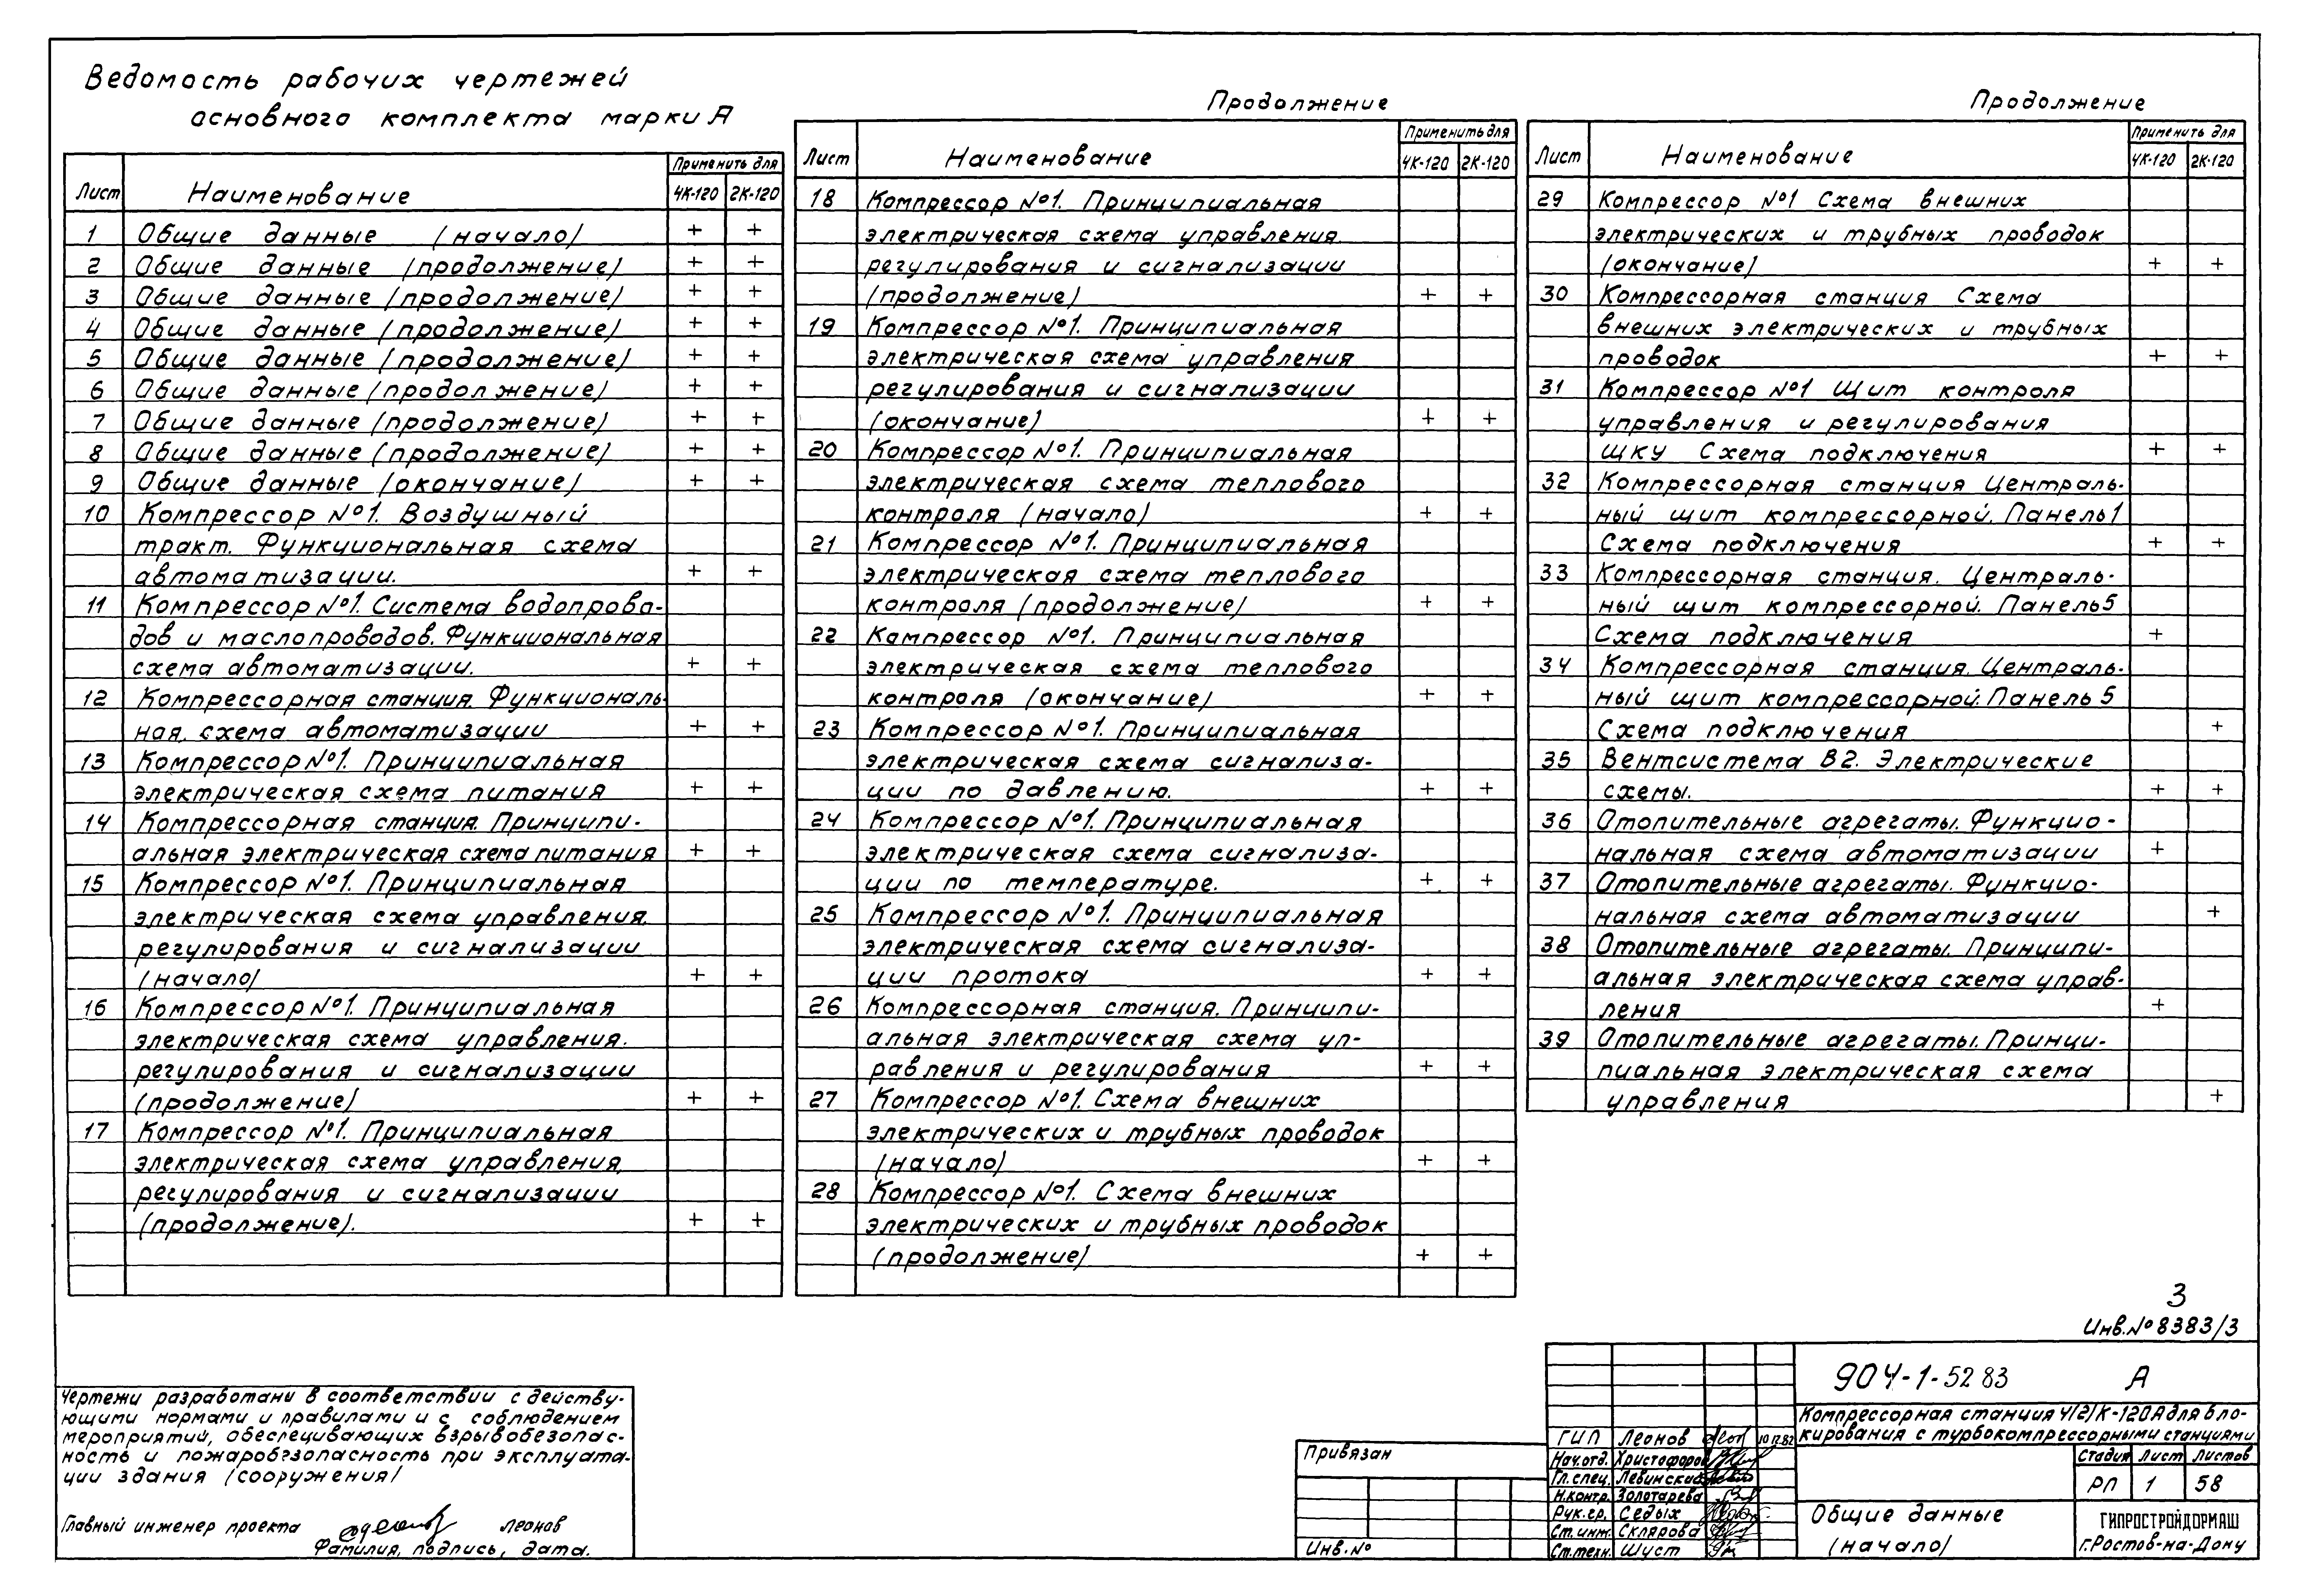 Ведомость рабочих чертежей
основного комплекта марки А
Лист Наименование Применить для
4К-120 2К-120
1 Общие данные (начало) + +
2 Общие данные (продолжение) + +
3 Общие данные (продолжение) + +
4 Общие данные (продолжение) + +
5 Общие данные (продолжение) + +
6 Общие данные (продолжение) + +
7 Общие данные (продолжение) + +
8 Общие данные (продолжение) + +
9 Общие данные (окончание) + +
10 Компрессор №1. Воздушный
тракт. Функциональная схема
автоматизации. + +
11 Компрессор №1. Система водопрово-
дов и маслопроводов. Функциональная
схема автоматизации. + +
12 Компрессорная станция. Функциональ-
ная схема автоматизации + +
13 Компрессор №1. Принципиальная
электрическая схема питания + +
14 Компрессорная станция. Принципи-
альная электрическая схема питания + +
15 Компрессор №1. Принципиальная
электрическая схема управления,
регулирования и сигнализации
(начало) + +
16 Компрессор №1. Принципиальная
электрическая схема управления.
регулирования и сигнализации
(продолжение) + +
17 Компрессор №1. Принципиальная
электрическая схема управления,
регулирования и сигнализации
(продолжение). + +
Продолжение
Лист Наименование Применить для
4К-120 2К-120
18 Компрессор №1. Принципиальная
электрическая схема управления.
регулирования и сигнализации
(продолжение) + +
19 Компрессор №1. Принципиальная
электрическая схема управления
регулирования и сигнализации
(окончание) + +
20 Компрессор №1. Принципиальная
электрическая схема теплового
контроля (начало) + +
21 Компрессор №1. Принципиальная
электрическая схема теплового
контроля (продолжение) + +
22 Компрессор №1. Принципиальная
электрическая схема теплового
контроля (окончание) + +
23 Компрессор №1. Принципиальная
электрическая схема сигнализа-
ции по давлению. + +
24 Компрессор №1. Принципиальная
электрическая схема сигнализа-
ции по температуре. + +
25 Компрессор №1. Принципиальная
электрическая схема сигнализа-
ции протока + +
26 Компрессорная станция. Принципи-
альная электрическая схема уп-
равления и регулирования + +
27 Компрессор №1. Схема внешних
электрических и трубных проводок
(начало) + +
28 Компрессор №1. Схема внешних
электрических и трубных проводок
(продолжение) + +
Продолжение
Лист Наименование Применить для
4К-120 2К-120
29 Компрессор №1 Схема внешних
электрических и трубных проводок
(окончание) + +
30 Компрессорная станция Схема
внешних электрических и трубных
проводок + +
31 Компрессор №1 Щит контроля
управления и регулирования
ЩКУ Схема подключения + +
32 Компрессорная станция Централь-
ный щит компрессорной. Панель 1
Схема подключения + +
33 Компрессорная станция. Централь-
ный щит компрессорной. Панель 5
Схема подключения +
34 Компрессорная станция. Централь-
ный щит компрессорной. Панель 5
Схема подключения +
35 Вентсистема В2. Электрические
схемы. + +
36 Отопительные агрегаты. Функцио-
нальная схема автоматизации +
37 Отопительные агрегаты. Функцио-
нальная схема автоматизации +
38 Отопительные агрегаты. Принципи-
альная электрическая схема управ-
ления +
39 Отопительные агрегаты. Принци-
пиальная электрическая схема
управления +
3
Инв.№ 8383/3
Чертежи разработаны в соответствии с действу-
ющими нормами и правилами и с соблюдением
мероприятий, обеспечивающих взрывобезопас-
ность и пожаробезопасность при эксплуата-
ции здания (сооружения)
Главный инженер проекта Леонов
Фамилия, подпись, дата.
Привязан
Инв.№
ГИП Леонов 10.12.82
Нач.отд. Христофоров
Гл.спец. Левинский
Н.контр. Золотарева
Рук.гр. Седых
Ст.инж. Склярова
Ст.техн. Шуст
904-1-52 83 А
Компрессорная станция 4(2)К-120А для бло-
кирования с турбокомпрессорными станциями
Стадия Лист Листов
РП 1 58
Общие данные
(начало)
ГИПРОСТРОЙДОРМАШ
г.Ростов-на-Дону